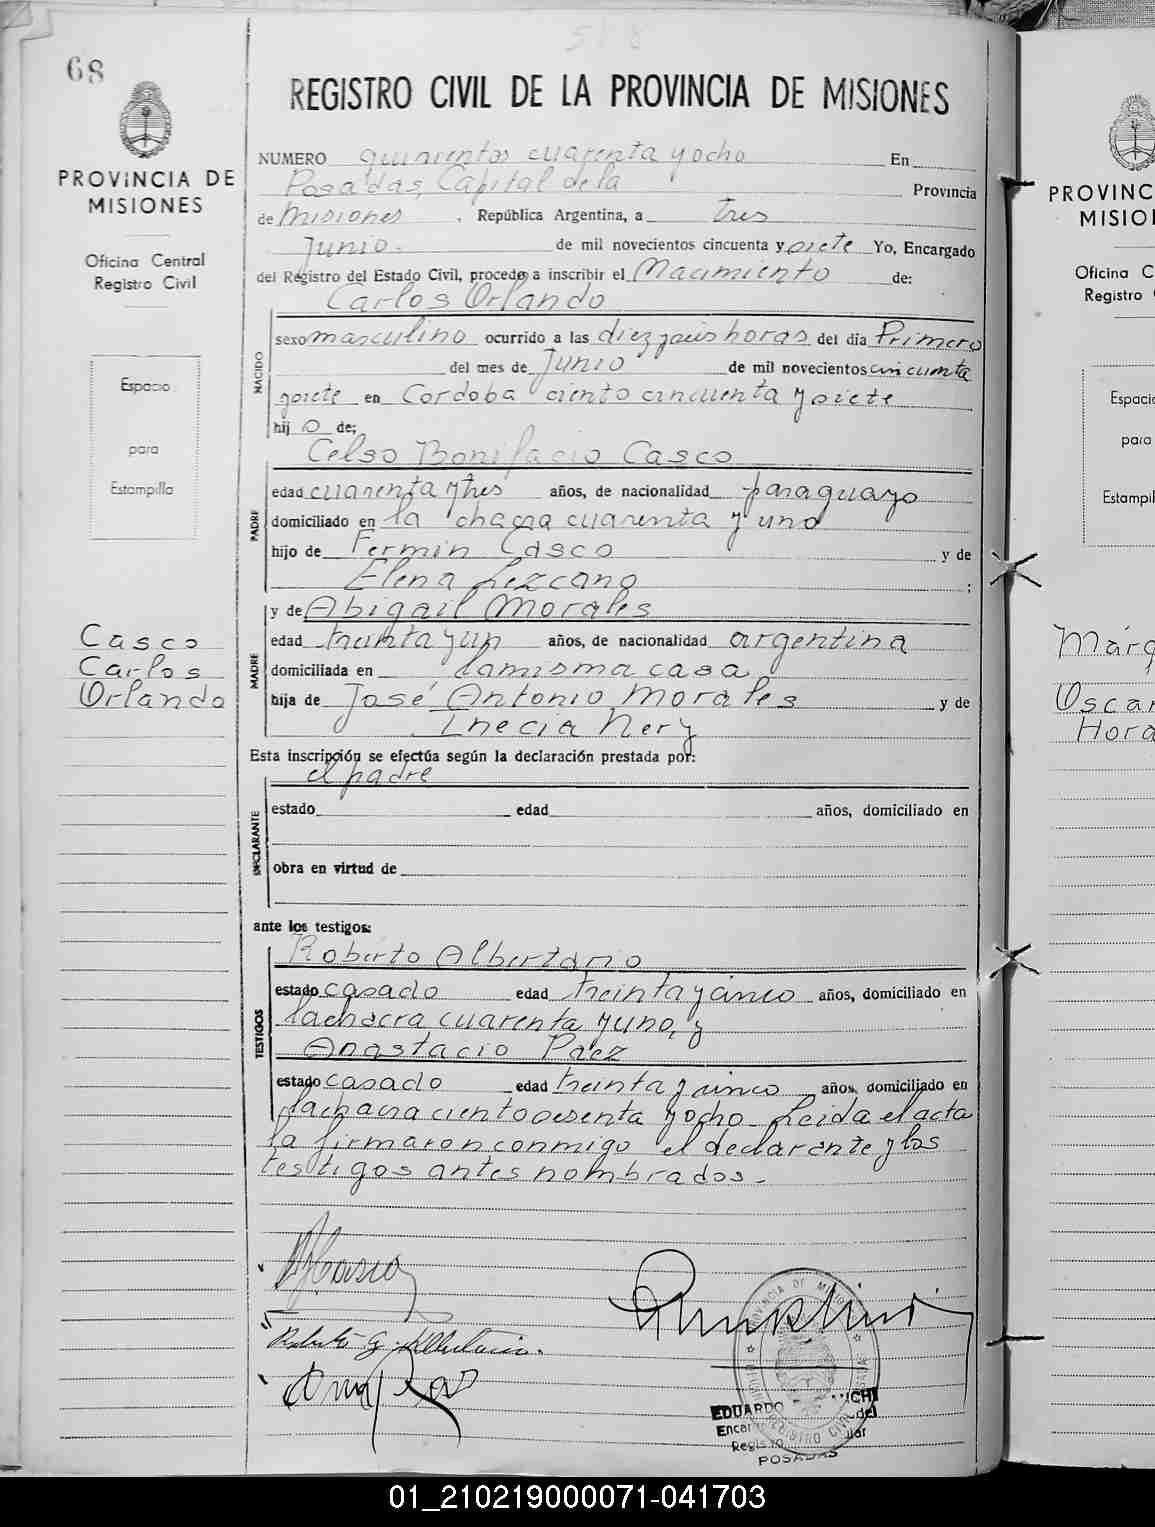 68
548
PROVINCIA DE
MISIONES
Oficina Central
Registro Civil
Espacio
para
Estampilla
Casco
Carlos
Orlando
REGISTRO CIVIL DE LA PROVINCIA DE MISIONES
NUMERO quinientos cuarenta y ocho En
Posadas, Capital de la Provincia
de Misiones, República Argentina, a tres
Junio. de mil novecientos cincuenta y siete Yo, Encargado
del Registro del Estado Civil, procedo a inscribir el Nacimiento de:
Carlos Orlando
NACIDO
sexo masculino ocurrido a las diez y seis horas del día Primero
del mes de Junio de mil novecientos cincuenta
y siete en Cordoba ciento cincuenta y siete
hijo de:
Celso Bonifacio Casco
PADRE
edad cuarenta y tres años, de nacionalidad paraguayo
domiciliado en la chacra cuarenta y uno
hijo de Fermin Casco y de
Elena Lezcano ;
y de Abigail Morales
MADRE
edad treinta y un años, de nacionalidad argentina
domiciliada en la misma casa
hija de José Antonio Morales y de
Inecia Nery
Esta inscripción se efectúa según la declaración prestada por:
el padre
DECLARANTE
estado edad años, domiciliado en
obra en virtud de
ante los testigos:
Roberto Albertario
TESTIGOS
estado casado edad treinta y cinco años, domiciliado en
la chacra cuarenta y uno, y
Anastacio Paez
estado casado edad treinta y cinco años, domiciliado en
la chacra ciento sesenta y ocho. Leida el acta
la firmaron conmigo el declarante y los
testigos antes nombrados.-
EDUARDO
Registro
POSADAS
PROVINC
MISIO
Oficina C
Registro
Espacio
para
Estampil
Márq
Oscar
Hora
01_210219000071-041703